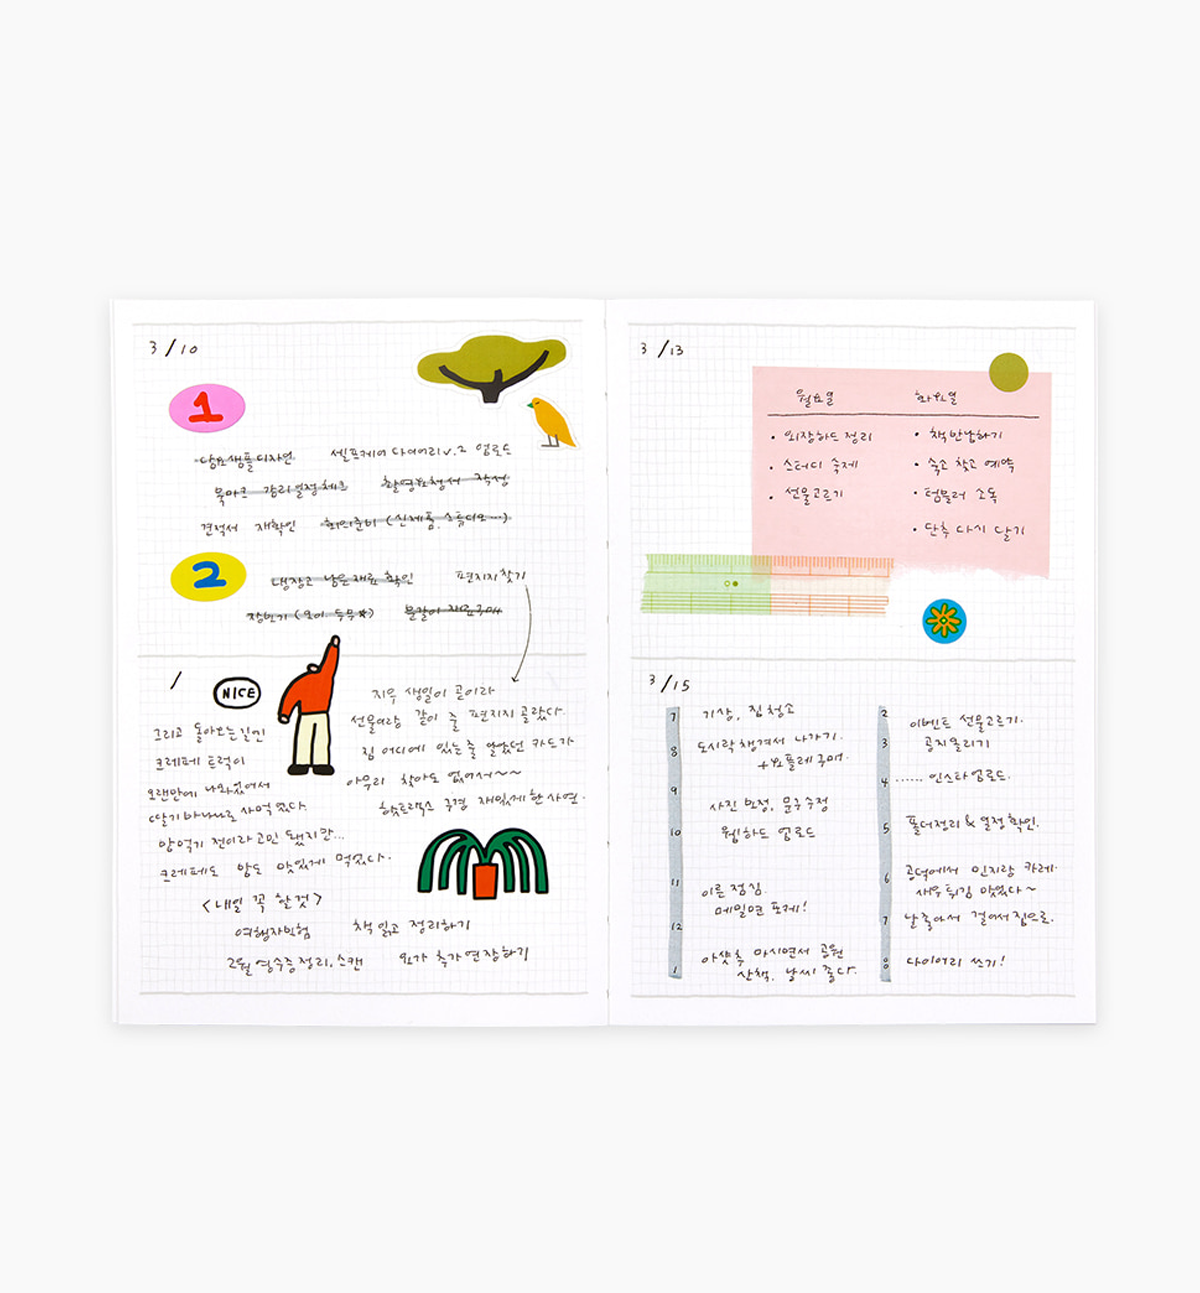 3/10
1
담요샘플디자인 셀프케어 다이어리 v.2 업로드
북마크 감리일정체크 촬영요청서 작성
견적서 재확인 회의준비 (신제품, 스튜디오…)
2
냉장고 남은재료 확인 편지지찾기
장보기 (오이, 두부☆) 분갈이 재료구매
/
NICE
지우 생일이 곧이라
선물이랑 같이 줄 편지지 골랐다.
집 어디에 있는줄 알았던 카드가
아무리 찾아도 없어서~~
핫트랙스 구경 재밌게한 사연.
그리고 돌아오는길엔
크레페 트럭이
오랜만에 나와있어서
딸기바나나로 사먹었다.
밥먹기 전이라 고민 됐지만…
크레페도 밥도 맛있게 먹었다.
<내일 꼭 할것>
여행자보험 책 읽고 정리하기
2월 영수증정리, 스캔 요가 추가연장하기
3/13
월요일 화요일
• 외장하드 정리
• 스터디 숙제
• 선물고르기
• 책반납하기
• 숙소 찾고 예약
• 텀블러 소독
• 단추 다시 달기
3/15
7 기상, 집청소
8 도시락챙겨서 나가기.
+요플레구매.
9 사진 보정, 문구수정
10 웹하드 업로드
11 이른 점심.
메밀면 포케!
12
1 아샷추 마시면서 공원
산책, 날씨 좋다.
2 이벤트 선물고르기.
3 공지올리기
4 …… 인스타업로드.
5 폴더정리 & 일정확인.
6 공덕에서 민지랑 카레.
새우튀김 맛있다~
7 날좋아서 걸어서집으로.
8 다이어리 쓰기!